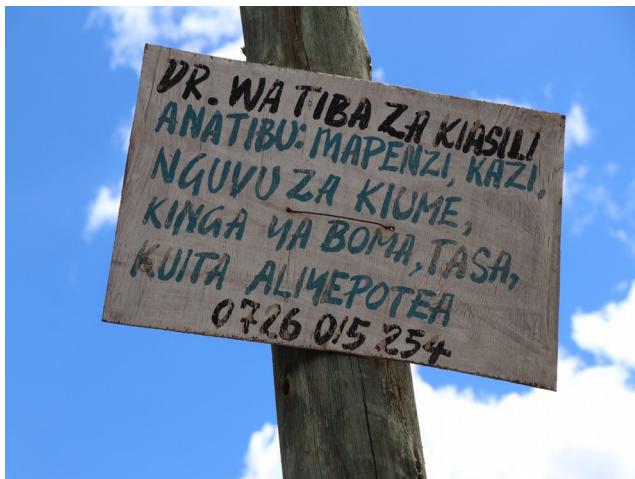 DR. WA TIBA ZA KIASILI
ANATIBU: MAPENZI, KAZI,
NGUVU ZA KIUME,
KINGA YA BOMA, TASA,
KUITA ALIYEPOTEA
0726 015 254